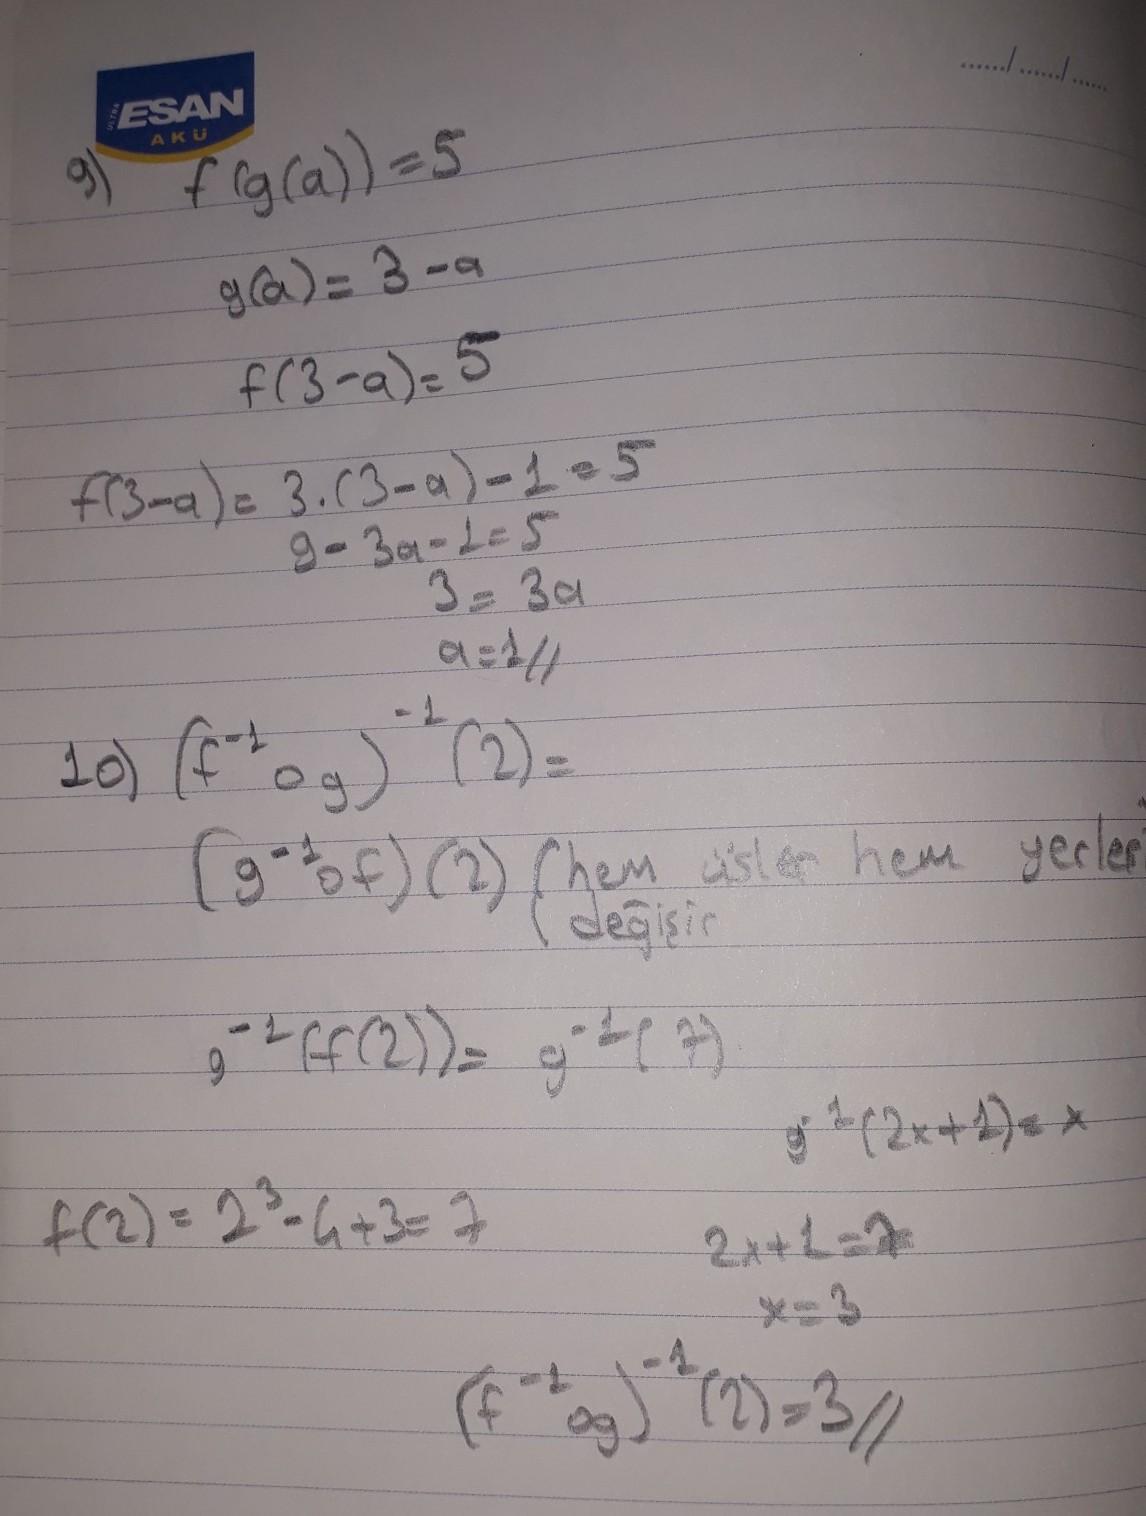 ULTRA
ESAN
AKÜ
9) f(g(a)) = 5
g(a) = 3 - a
f(3-a) = 5
f(3-a) = 3.(3-a) - 1 = 5
9 - 3a - 1 = 5
3 = 3a
a = 1 //
10) (f⁻¹og)⁻¹ (2) =
(g⁻¹of) (2) (hem üsler hem yerler
( değişir
g⁻¹(f(2)) = g⁻¹(7)
g⁻¹(2x+1) = x
f(2) = 2³ - 4 + 3 = 7
2x + 1 = 7
x = 3
(f⁻¹og)⁻¹ (2) = 3 //